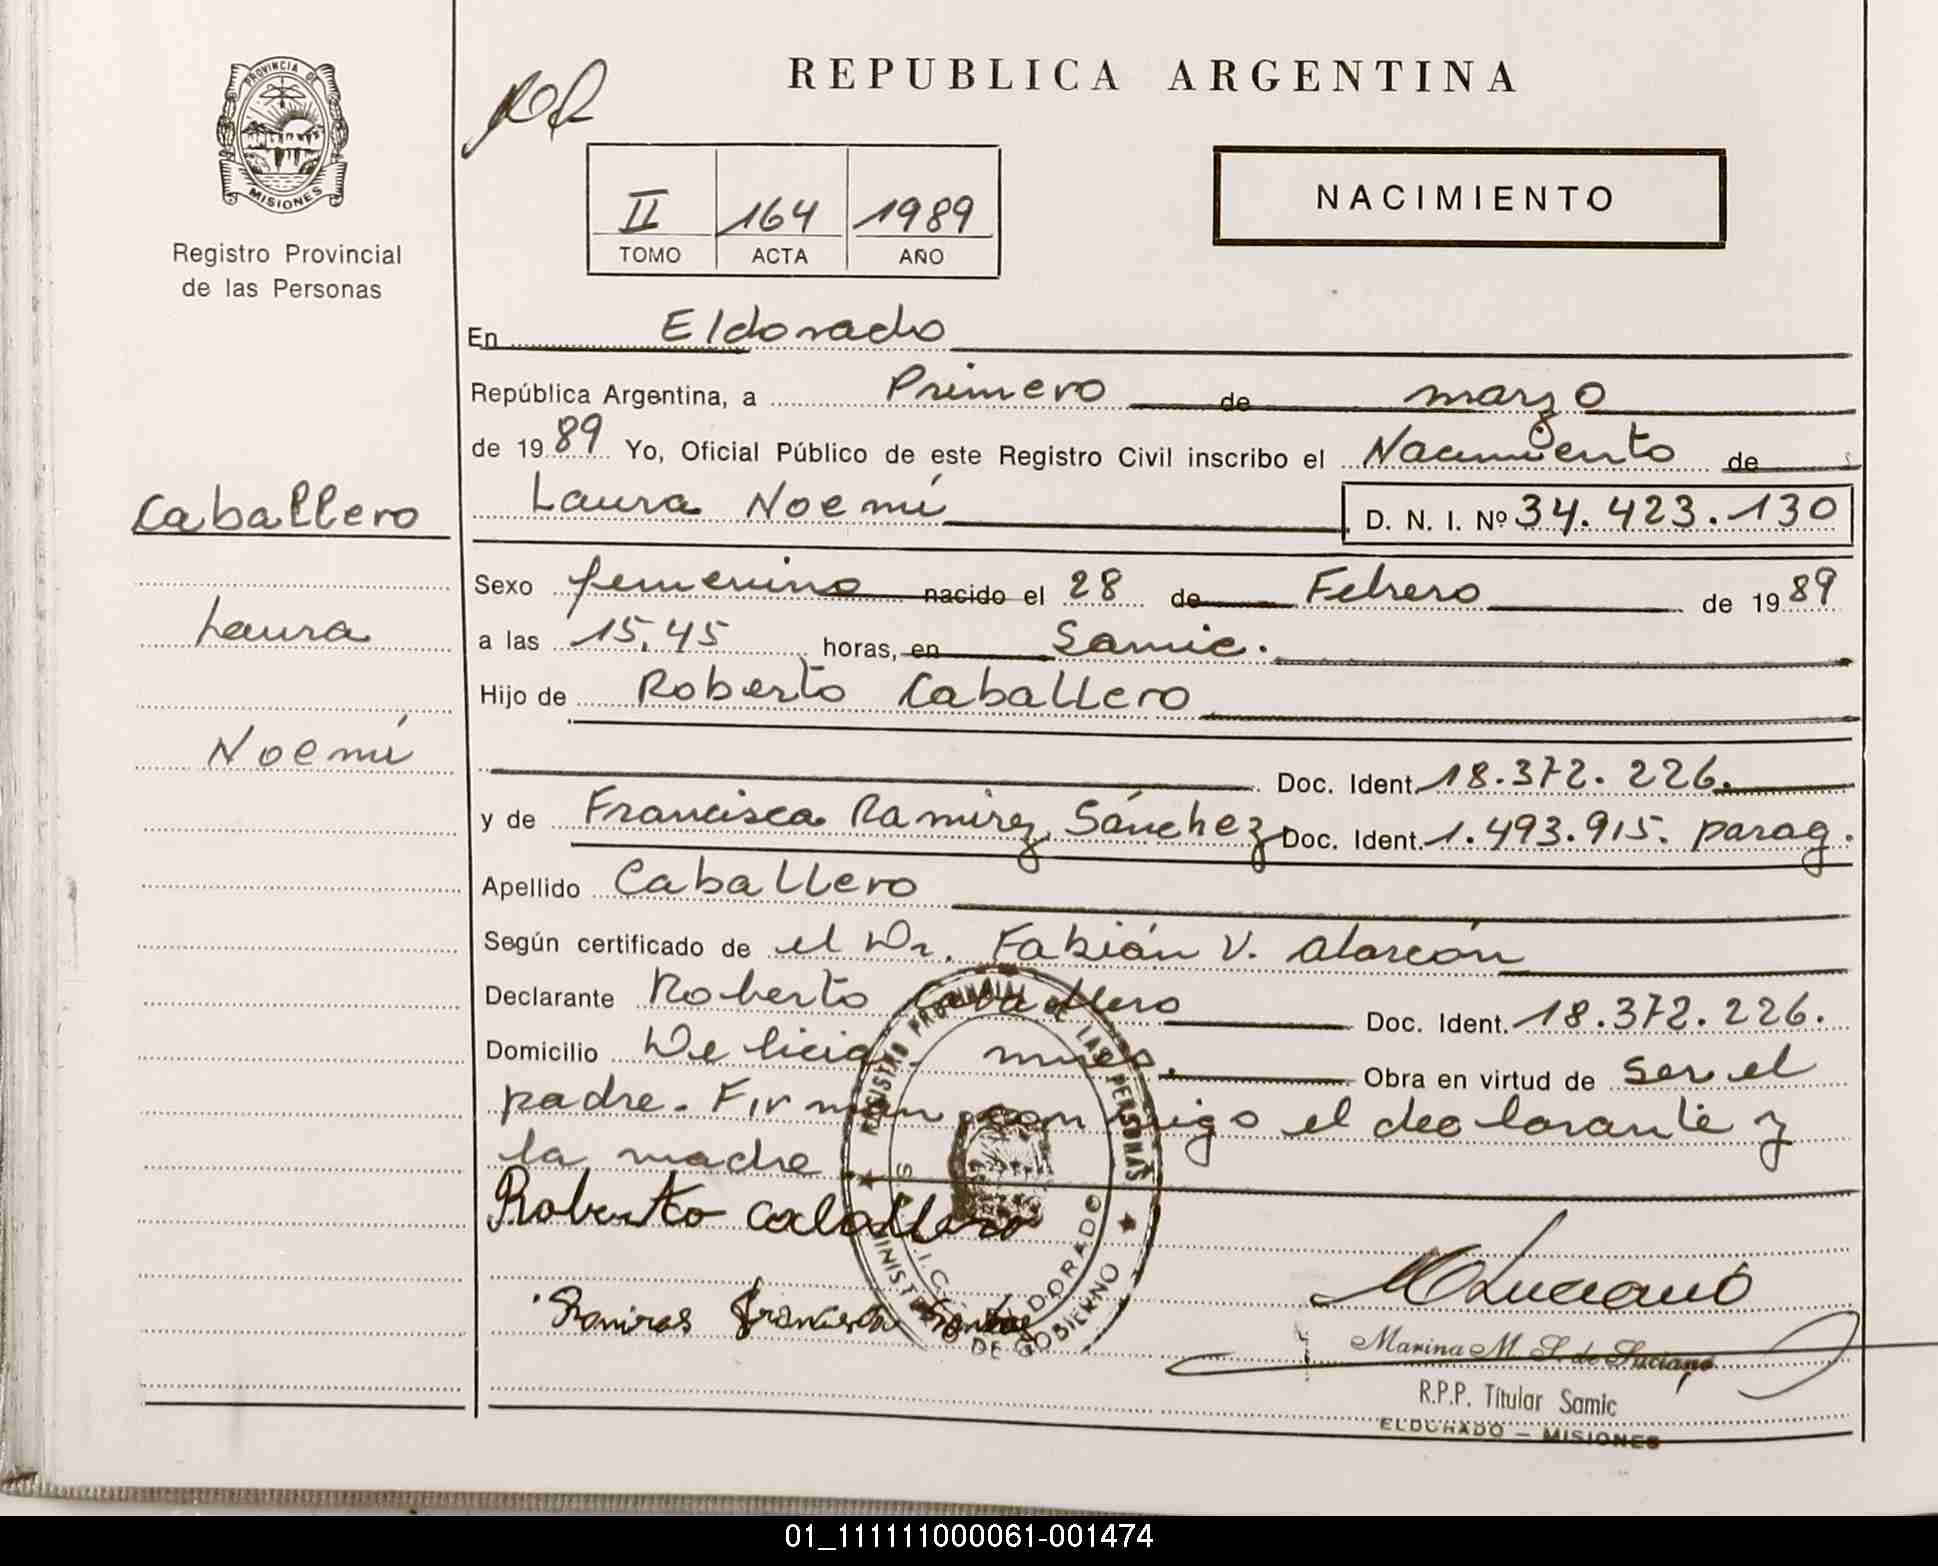 PROVINCIA DE
MISIONES
Registro Provincial
de las Personas
REPUBLICA ARGENTINA
NACIMIENTO
II 164 1989
TOMO ACTA AÑO
En Eldorado
República Argentina, a Primero de marzo
de 1989 Yo, Oficial Público de este Registro Civil inscribo el Nacimiento de
Caballero
Laura Noemí D. N. I. Nº 34.423.130
Sexo femenino nacido el 28 de Febrero de 1989
Laura
a las 15,45 horas, en Samic.
Hijo de Roberto Caballero
Noemí
Doc. Ident. 18.372.226.
y de Francisca Ramirez Sánchez Doc. Ident. 1.493.915. parag.
Apellido Caballero
Según certificado de el Dr. Fabián V. Alarcón
Declarante Roberto Caballero Doc. Ident. 18.372.226.
Domicilio Delicia. mnes. Obra en virtud de ser el
padre. Firman conmigo el declarante y
la madre
Roberto caballero
Ramires Francisca
REGISTRO PROVINCIAL DE LAS PERSONAS
MINISTERIO DE GOBIERNO
ELDORADO
MLuciano
Marina M. S. de Luciano
R.P.P. Titular Samic
ELDORADO — MISIONES
01_111111000061-001474